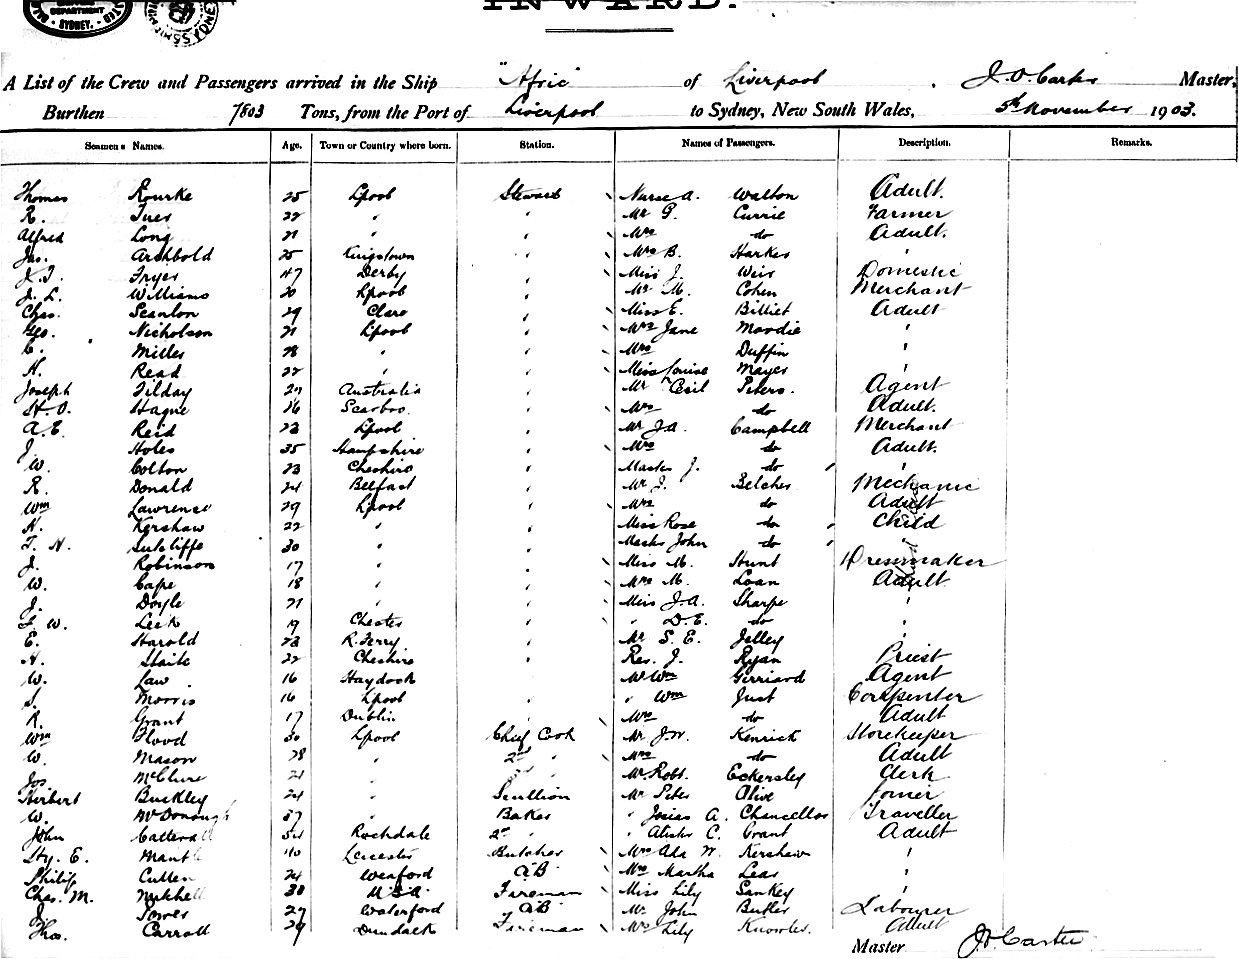 DEPARTMENT
SYDNEY.
INWARD.
A List of the Crew and Passengers arrived in the Ship "Afric" of Liverpool, J. O. Carter Master,
Burthen 7803 Tons, from the Port of Liverpool to Sydney, New South Wales, 5th November 1903.
Seamen's Names. Age. Town or Country where born. Station. Names of Passengers. Description. Remarks.
Thomas Rourke 25 Lpool Steward Nurse A. Walton Adult.
R. Ives 22 " " Mr G. Currie Farmer
Alfred Long 21 " " Mrs do Adult.
Jas. Archbold 25 Kingstown " Mrs B. Harker "
J. T. Fryer 47 Derby " Miss J. Weir Domestic
J. L. Williams 20 Lpool " Mr M. Cohen Merchant
Chas. Scanlon 29 Clare " Miss E. Billiet Adult
Geo. Nicholson 21 Lpool " Mrs Jane Moodie "
C. Miller 28 " " Mrs Duffin "
H. Read 22 " " Miss Louise Mayer "
Joseph Tilday 27 Australia " Mr Cecil Peters. Agent
H. O. Hague 26 Scarbro. " Mrs do Adult.
A. E. Reid 23 Lpool " Mr J. A. Campbell Merchant
J. Holes 35 Hampshire " Mrs do Adult.
W. Colton 23 Cheshire " Master J. do "
R. Donald 24 Belfast " Mr J. Belcher Mechanic
Wm Lawrence 29 Lpool " Mrs do Adult
N. Kershaw 22 " " Miss Rose do Child
T. N. Sutcliffe 30 " " Master John do "
J. Robinson 17 " " Miss M. Hunt Dressmaker
W. Cape 18 " " Mrs M. Loan Adult
J. Doyle 21 " " Miss J. A. Sharpe "
F. W. Leek 19 Chester " " D. E. do "
E. Harold 23 R. Ferry " Mr S. E. Jelley "
H. Staite 22 Cheshire " Rev. J. Ryan Priest
W. Law 16 Haydock " Mr Wm Gerrard Agent
S. Morris 16 Lpool " " Wm Just Carpenter
R. Grant 17 Dublin " Mrs do Adult
Wm Flood 30 Lpool Chief Cook Mr J. W. Kenrick Storekeeper
W. Mason 28 " 2nd " Mrs do Adult
Jos McClure 21 " Mr Robt. Eckersley Clerk
Herbert Buckley 24 " Scullion Mr Peter Olive Joiner
W. McDonough 37 " Baker " Josias A. Chancellor Traveller
John Catterall 34 Rochdale 2nd " " C. Grant Adult
Hy. E. Mantle 40 Leicester Butcher Mrs Ada W. Kershaw "
Philip Cullen 24 Wexford AB Mrs Martha Lear "
Chas. M. Mitchell 30 U.S.A. Fireman Miss Lily Sankey "
J. Power 27 Waterford AB Mr John Butler Labourer
Thos. Carroll 29 Dundalk Fireman Mrs Lily Knowles. Adult
Master J. O. Carter